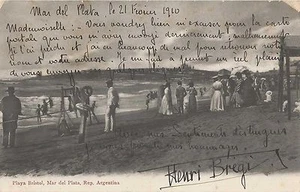 Mar del Plata le 21 Février 1910
Mademoiselle: Vous voudrez bien m'excuser pour la carte
postale que vous m'avez envoyé dernièrement, malheureusement
je l'ai perdu et j'ai eu beaucoup de mal pour retrouver votre
nom et votre adresse. Je me fais un plaisir
de vous envoyer
mes sentiments distingués
mes hommages.
Henri Bregi
Playa Bristol, Mar del Plata, Rep. Argentina